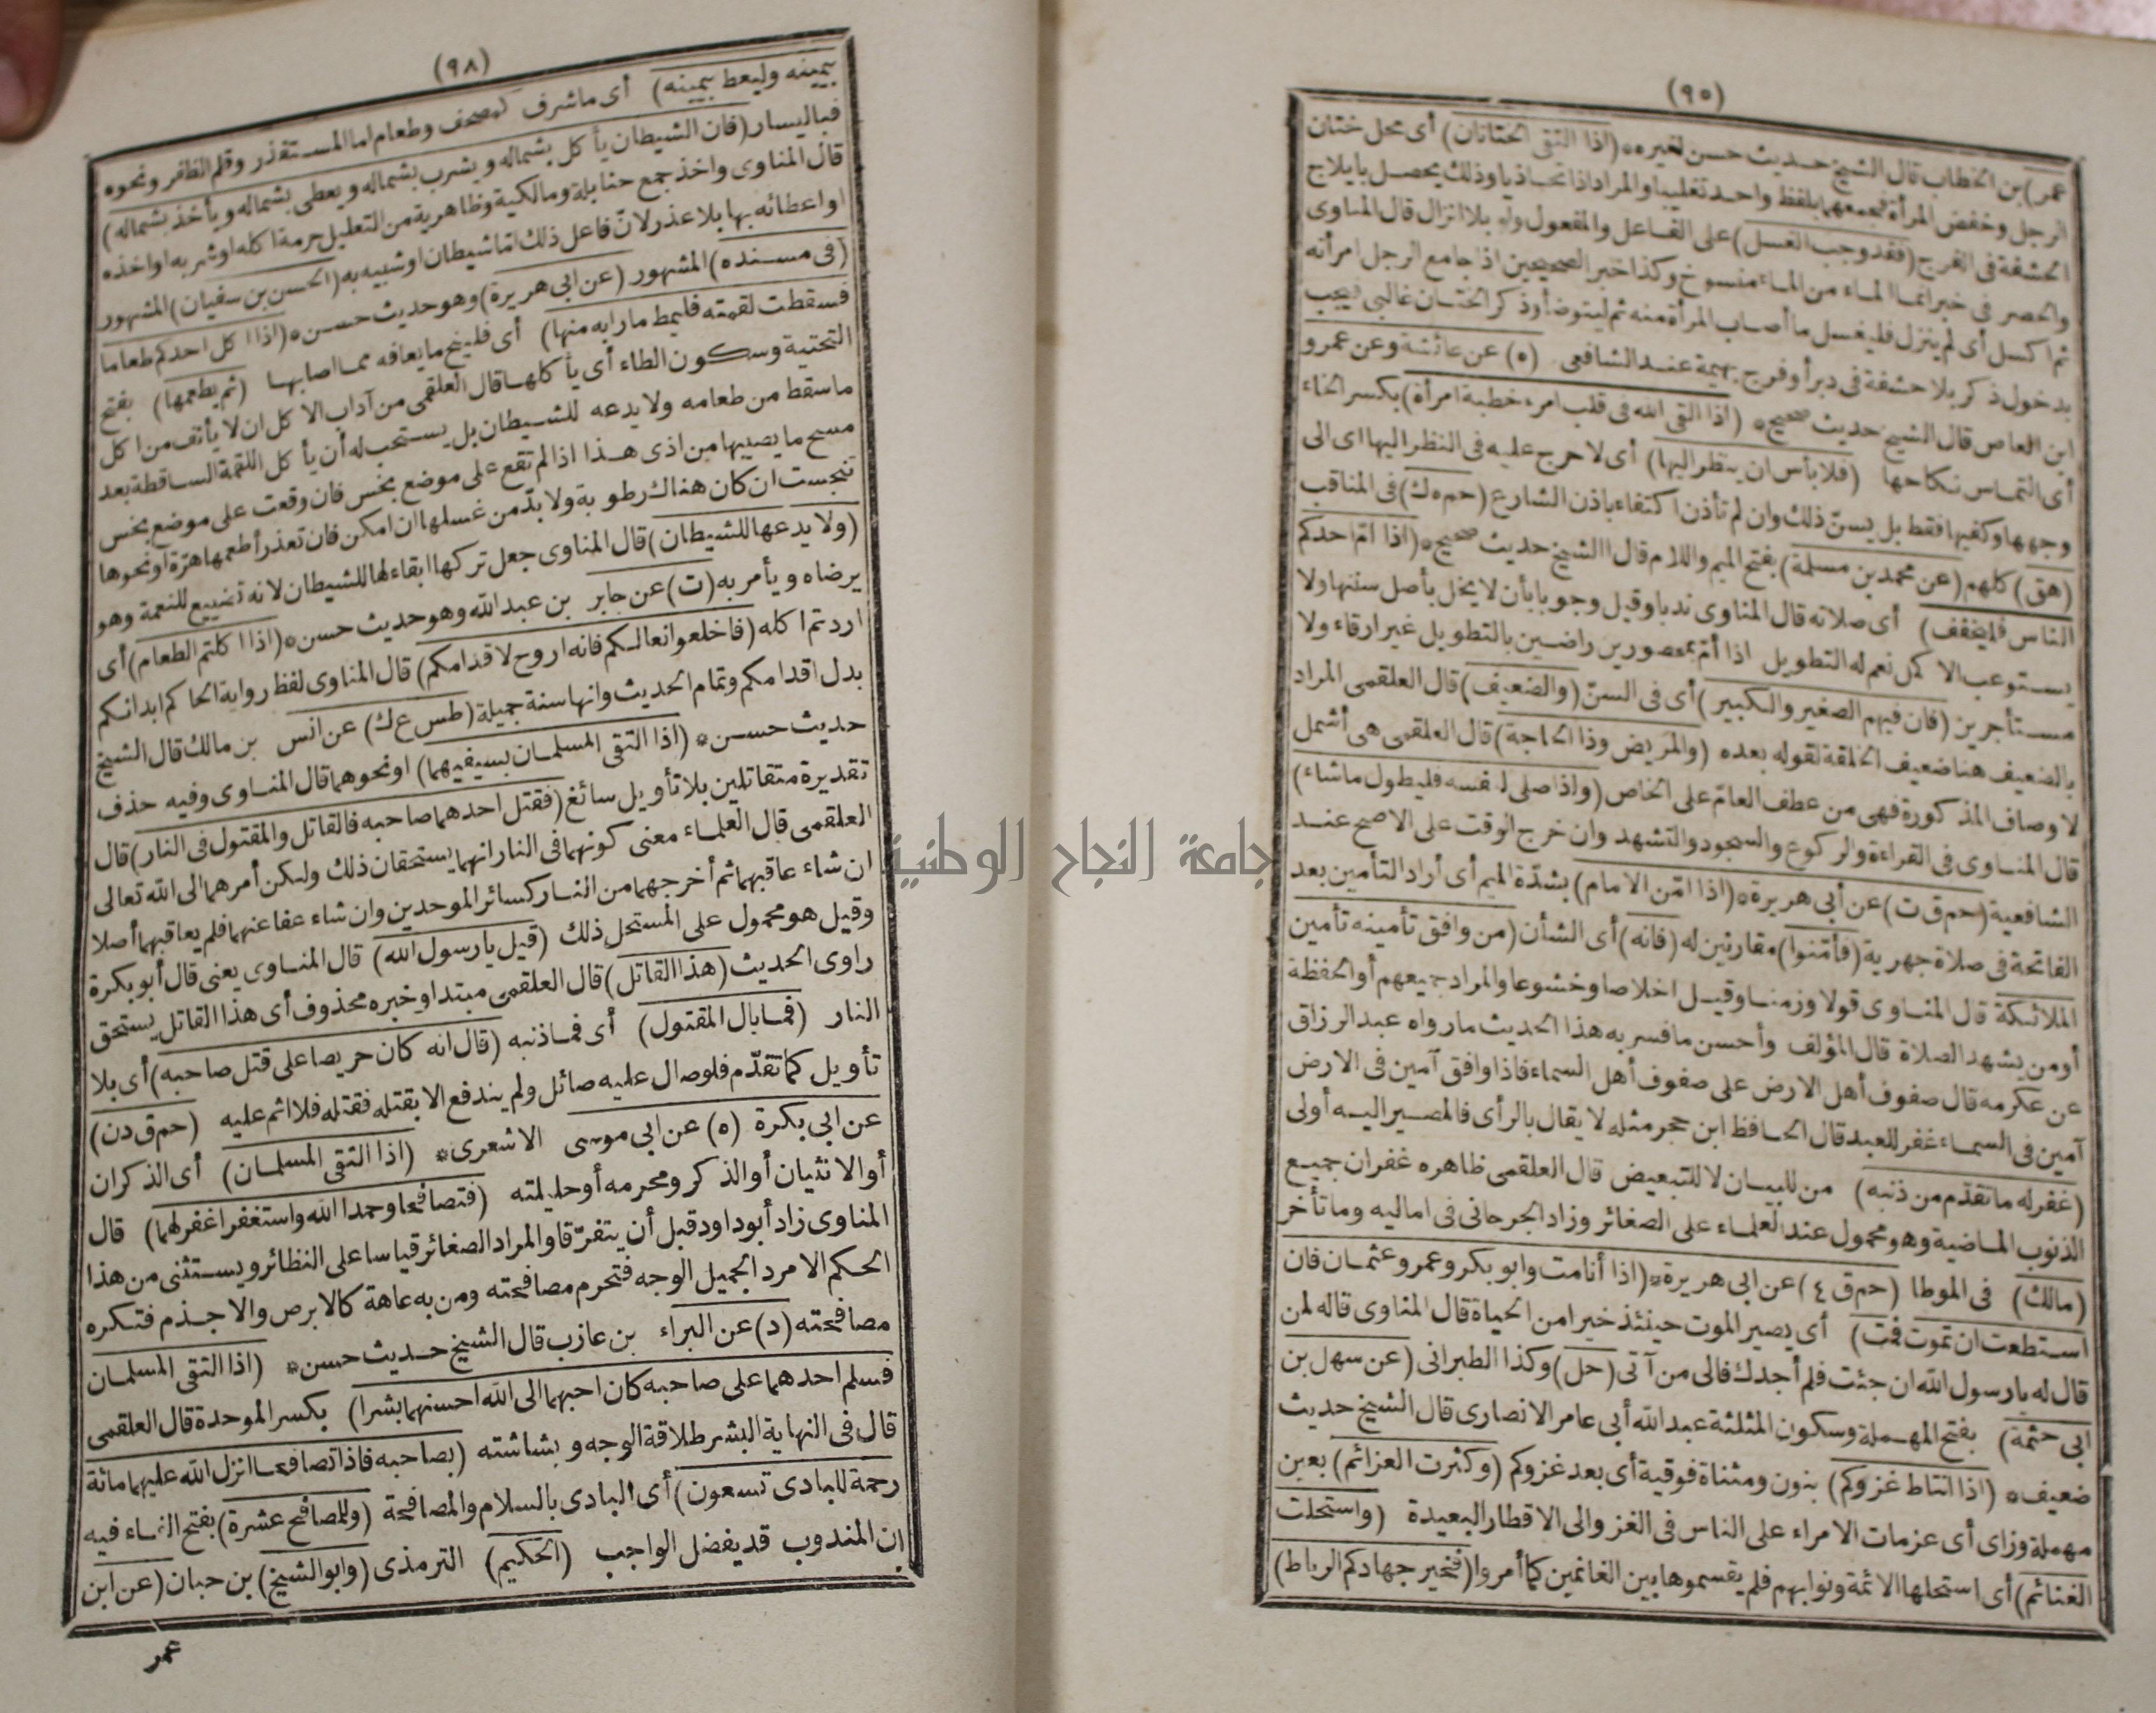 (٩٥)
عمر) بن الخطاب قال الشيخ حديث حسن لغيره * (اذا التقى الختانان) أى محل ختان
الرجل وخفض المرأة فجمعهما بلفظ واحد تغليبا والمراد اذا تحاذيا وذلك يحصل بايلاج
الحشفة فى الفرج (فقد وجب الغسل) على الفاعل والمفعول ولو بلا انزال قال المناوى
والحصر فى خبر انما الماء من الماء منسوخ وكذا خبر الصحيحين اذا جامع الرجل امرأته
ثم اكسل أى لم ينزل فليغسل ما أصاب المرأة منه ثم ليتوضأ وذكر الختان غالبى فيجب
بدخول ذكر بلا حشفة فى دبر أو فرج بهيمة عند الشافعى (ه) عن عائشة وعن عمرو
ابن العاص قال الشيخ حديث صحيح * (اذا القى الله فى قلب امرء خطبة امرأة) بكسر الخاء
أى التماس نكاحها (فلا بأس ان ينظر اليها) أى لا حرج عليه فى النظر اليها اى الى
وجهها وكفيها فقط بل يسنّ ذلك وان لم تأذن اكتفاء باذن الشارع (حم ه ك) فى المناقب
(هق) كلهم (عن محمد بن مسلمة) بفتح الميم واللام قال الشيخ حديث صحيح * (اذا امّ احدكم
الناس فليخفف) أى صلاته قال المناوى ندبا وقيل وجوبا بأن لا يخل بأصل سننها ولا
يستوعب الاكمل نعم له التطويل اذا أمّ بمحصورين راضين بالتطويل غير ارقاء ولا
مستأجرين (فان فيهم الصغير والكبير) أى فى السنّ (والضعيف) قال العلقمى المراد
بالضعيف هنا ضعيف الخلقة لقوله بعده (والمريض وذا الحاجة) قال العلقمى هى أشمل
لاوصاف المذكورة فهى من عطف العامّ على الخاص (واذا صلى لنفسه فليطول ما شاء)
قال المناوى فى القراءة والركوع والسجود والتشهد وان خرج الوقت على الاصح عند
الشافعية (حم ق ت) عن أبى هريرة * (اذا امّن الامام) بشدّة الميم أى أراد التأمين بعد
الفاتحة فى صلاة جهرية (فأمّنوا) مقارنين له (فانه) أى الشأن (من وافق تأمينه تأمين
الملائكة قال المناوى قولا وزمنا وقيل اخلاصا وخشوعا والمراد جميعهم أو الحفظة
أو من يشهد الصلاة قال المؤلف وأحسن ما فسر به هذا الحديث ما رواه عبد الرزاق
عن عكرمه قال صفوف أهل الارض على صفوف أهل السماء فاذا وافق آمين فى الارض
آمين فى السماء غفر للعبد قال الحافظ ابن حجر مثله لا يقال بالرأى فالمصير اليه أولى
(غفر له ما تقدّم من ذنبه) من للبيان لا للتبعيض قال العلقمى ظاهره غفران جميع
الذنوب الماضية وهو محمول عند العلماء على الصغائر وزاد الجرجانى فى اماليه وما تأخر
(مالك) فى الموطا (حم ق ٤) عن ابى هريرة * (اذا أنا مت وابو بكر وعمر وعثمان فان
استطعت ان تموت فمت) أى يصير الموت حينئذ خيرا من الحياة قال المناوى قاله لمن
قال له يا رسول الله ان جئت فلم أجدك فالى من آتى (حل) وكذا الطبرانى (عن سهل بن
ابى حثمة) بفتح المهملة وسكون المثلثة عبد الله أبى عامر الانصارى قال الشيخ حديث
ضعيف * (اذا انتاط غزوكم) بنون ومثناة فوقية أى بعد غزوكم (وكثرت العزائم) بعين
مهملة وزاى أى عزمات الامراء على الناس فى الغزو الى الاقطار البعيدة (واستحلت
الغنائم) أى استحلها الائمة ونوابهم فلم يقسموها بين الغانمين كما أمروا (فخير جهادكم الرباط)
(٩٨)
بيمينه وليعط بيمينه) أى ما شرف كمصحف وطعام اما المستقذر وقلم الظافر ونحوه
فباليسار (فان الشيطان يأكل بشماله ويشرب بشماله ويعطى بشماله ويأخذ بشماله)
قال المناوى واخذ جمع حنابلة ومالكية وظاهرية من التعليل حرمة اكله او شربه او اخذه
او اعطائه بها بلا عذر لانّ فاعل ذلك اما شيطان او شبيه به (الحسن بن سفيان) المشهور
(فى مسنده) المشهور (عن ابى هريرة) وهو حديث حسن * (اذا اكل احدكم طعاما
فسقطت لقمته فليمط ما رابه منها) أى فلينح ما يعافه مما اصابها (ثم يطعمها) بفتح
التحتية وسكون الطاء أى يأكلها قال العلقمى من آداب الاكل ان لا يأنف من اكل
ما سقط من طعامه ولا يدعه للشيطان بل يستحب له أن يأكل اللقمة الساقطة بعد
مسح ما يصيبها من اذى هذا اذا لم تقع على موضع نجس فان وقعت على موضع نجس
تنجست ان كان هناك رطوبة ولا بدّ من غسلها ان امكن فان تعذر أطعمها هرّة او نحوها
(ولا يدعها للشيطان) قال المناوى جعل تركها ابقاء لها للشيطان لانه تضييع للنعمة وهو
يرضاه ويأمر به (ت) عن جابر بن عبد الله وهو حديث حسن * (اذا اكلتم الطعام) أى
اردتم اكله (فاخلعوا نعالكم فانه اروح لاقدامكم) قال المناوى لفظ رواية الحاكم ابدانكم
بدل اقدامكم وتمام الحديث وانها سنة جميلة (طس ع ك) عن انس بن مالك قال الشيخ
حديث حسن * (اذا التقى المسلمان بسيفيهما) او نحوهما قال المناوى وفيه حذف
تقديره متقاتلين بلا تأويل سائغ (فقتل احدهما صاحبه فالقاتل والمقتول فى النار) قال
العلقمى قال العلماء معنى كونهما فى النار انهما يستحقان ذلك ولكن أمرهما الى الله تعالى
ان شاء عاقبهما ثم أخرجهما من النار كسائر الموحدين وان شاء عفا عنهما فلم يعاقبهما أصلا
وقيل هو محمول على المستحل ذلك (قيل يا رسول الله) قال المناوى يعنى قال أبو بكرة
راوى الحديث (هذا القاتل) قال العلقمى مبتدا وخبره محذوف أى هذا القاتل يستحق
النار (فما بال المقتول) أى فما ذنبه (قال انه كان حريصا على قتل صاحبه) أى بلا
تأويل كما تقدّم فلو صال عليه صائل ولم يندفع الا بقتله فقتله فلا اثم عليه (حم ق د ن)
عن ابى بكرة (ه) عن ابى موسى الاشعرى * (اذا التقى المسلمان) أى الذكران
أو الانثيان أو الذكر ومحرمه أو حليلته (فتصافحا وحمدا الله واستغفرا غفر لهما) قال
المناوى زاد أبو داود قبل أن يتفرّقا والمراد الصغائر قياسا على النظائر ويستثنى من هذا
الحكم الامرد الجميل الوجه فتحرم مصافحته ومن به عاهة كالابرص والاجذم فتكره
مصافحته (د) عن البراء بن عازب قال الشيخ حديث حسن * (اذا التقى المسلمان
فسلم احدهما على صاحبه كان احبهما الى الله احسنهما بشرا) بكسر الموحدة قال العلقمى
قال فى النهاية البشر طلاقة الوجه وبشاشته (بصاحبه فاذا تصافحا انزل الله عليهما مائة
رحمة للبادى تسعون) أى البادى بالسلام والمصافحة (وللمصافح عشرة) بفتح الفاء فيه
ان المندوب قد يفضل الواجب (الحكيم) الترمذى (وابو الشيخ) بن حبان (عن ابن
عمر
جامعة النجاح الوطنية